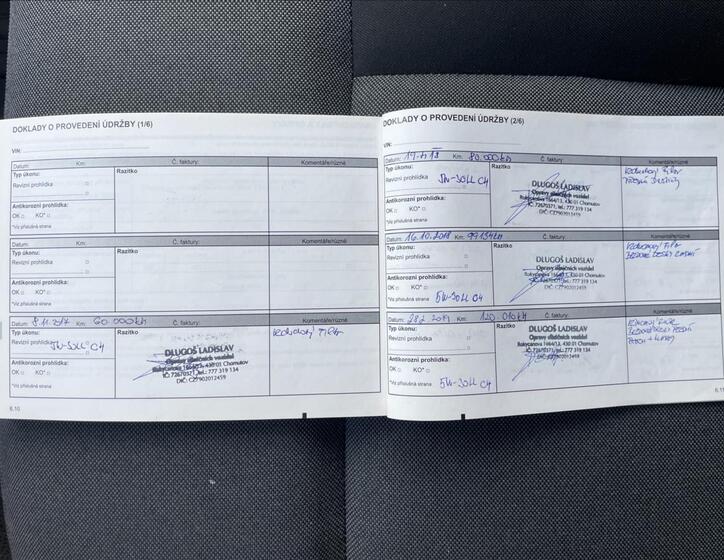 DOKLADY O PROVEDENÍ ÚDRŽBY (1/6)
VIN:
Datum: Km: Č. faktury: Komentáře/různé
Typ úkonu: Razítko
Revizní prohlídka
Antikorozní prohlídka:
OK KO*
*Viz příslušná strana
Datum: Km: Č. faktury: Komentáře/různé
Typ úkonu: Razítko
Revizní prohlídka
Antikorozní prohlídka:
OK KO*
*Viz příslušná strana
Datum: 8.11.2017 Km: 60.000km Č. faktury: Komentáře/různé
Typ úkonu: Razítko
Revizní prohlídka 5W-30LL C4
Antikorozní prohlídka:
OK KO*
*Viz příslušná strana
DLUGOŠ LADISLAV
Opravy silničních vozidel
Rokycanova 1664/13, 430 01 Chomutov
IČ: 72670371, tel.: 777 319 134
DIČ: CZ7902012459
6.10
DOKLADY O PROVEDENÍ ÚDRŽBY (2/6)
VIN:
Datum: Km: 80.000km Č. faktury: Komentáře/různé
Typ úkonu: Razítko
Revizní prohlídka 5W-30LL C4
Antikorozní prohlídka:
OK KO*
*Viz příslušná strana
DLUGOŠ LADISLAV
Opravy silničních vozidel
Rokycanova 1664/13, 430 01 Chomutov
IČ: 72670371, tel.: 777 319 134
Datum: 16.10.2018 Km: Č. faktury: Komentáře/různé
Typ úkonu: Razítko
Revizní prohlídka
Antikorozní prohlídka:
OK KO*
*Viz příslušná strana 5W-30LL C4
DLUGOŠ LADISLAV
Opravy silničních vozidel
Rokycanova 1664/13, 430 01 Chomutov
IČ: 72670371, tel.: 777 319 134
Datum: Km: Č. faktury: Komentáře/různé
Typ úkonu: Razítko
Revizní prohlídka
Antikorozní prohlídka:
OK KO*
*Viz příslušná strana 5W-30LL C4
DLUGOŠ LADISLAV
Opravy silničních vozidel
Rokycanova 1664/13, 430 01 Chomutov
IČ: 72670371, tel.: 777 319 134
6.11